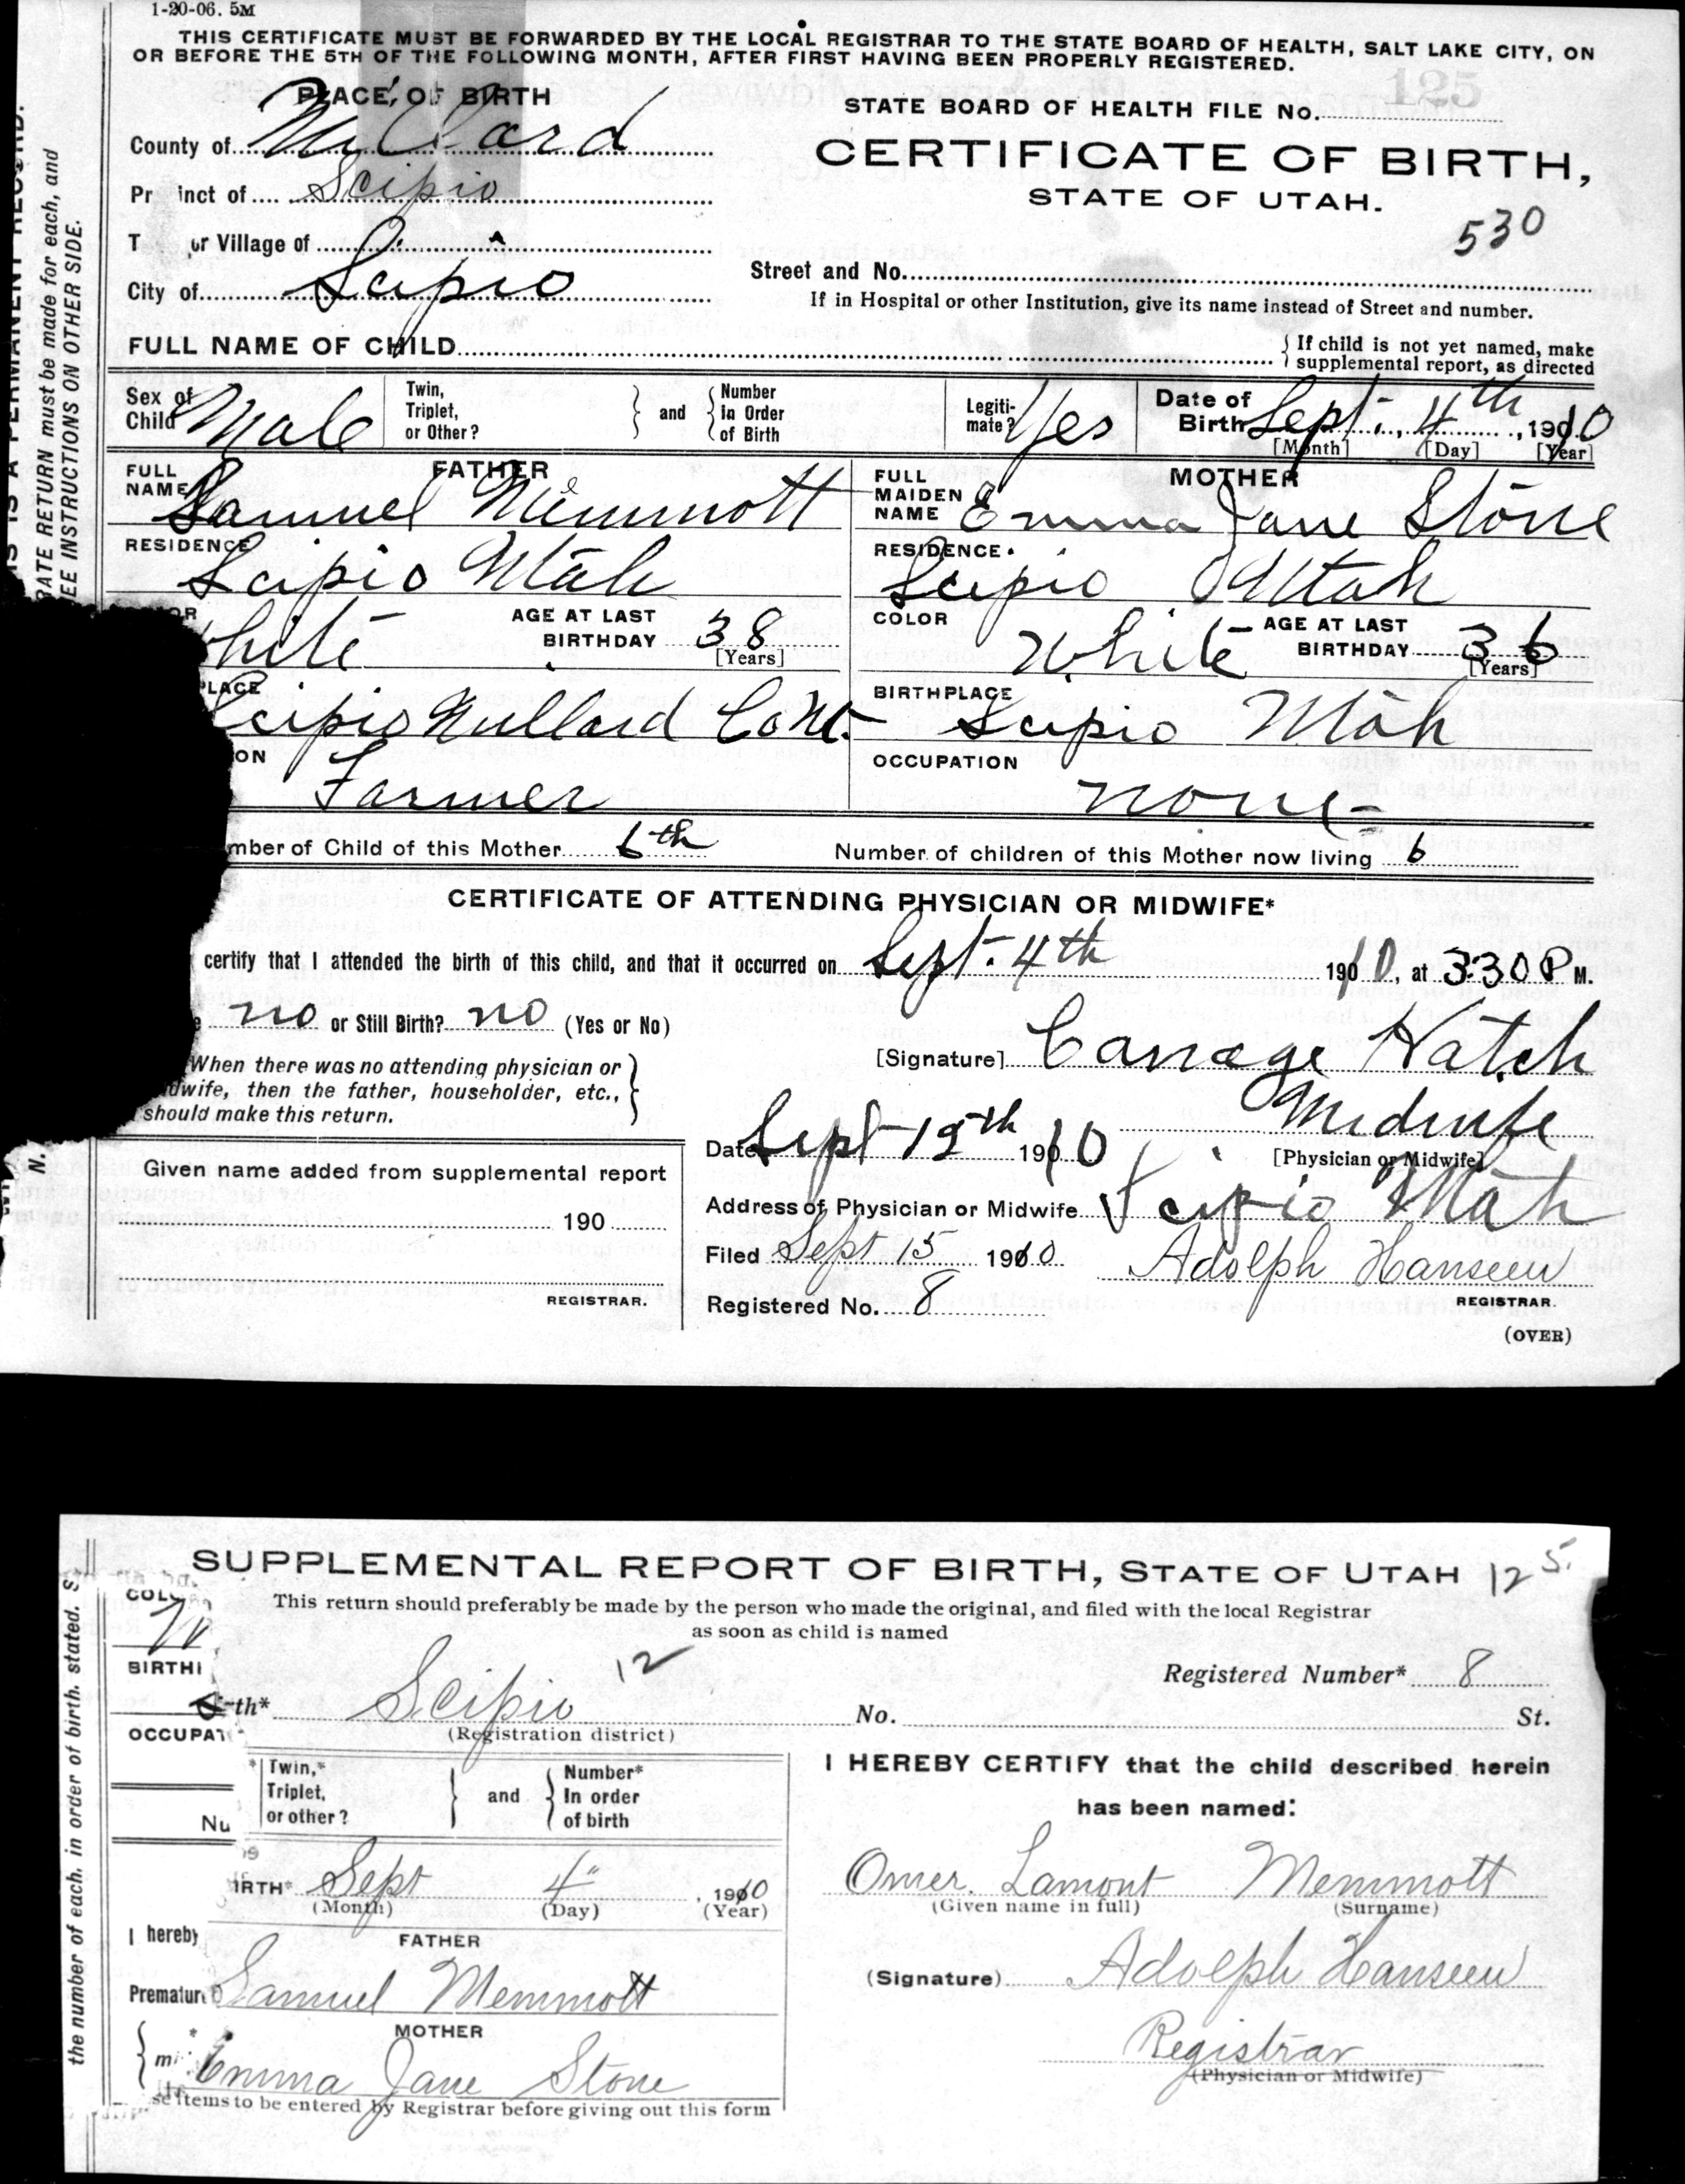 1-20-06. 5M
THIS CERTIFICATE MUST BE FORWARDED BY THE LOCAL REGISTRAR TO THE STATE BOARD OF HEALTH, SALT LAKE CITY, ON
OR BEFORE THE 5TH OF THE FOLLOWING MONTH, AFTER FIRST HAVING BEEN PROPERLY REGISTERED.
125
PLACE OF BIRTH
STATE BOARD OF HEALTH FILE No.
County of Millard
CERTIFICATE OF BIRTH,
Pr inct of Scipio
STATE OF UTAH.
530
T or Village of
Street and No.
City of Scipio
If in Hospital or other Institution, give its name instead of Street and number.
FULL NAME OF CHILD
If child is not yet named, make
supplemental report, as directed
Sex of Child Male
Twin, Triplet, or Other?
and
Number in Order of Birth
Legiti-mate? Yes
Date of Birth Sept. 4th, 1910
[Month] [Day] [Year]
FATHER
FULL NAME Samuel Memmott
MOTHER
FULL MAIDEN NAME Emma Jane Stone
RESIDENCE Scipio Utah
RESIDENCE. Scipio Utah
OR hite AGE AT LAST BIRTHDAY 38 [Years]
COLOR White AGE AT LAST BIRTHDAY 36 [Years]
PLACE cipio Millard Co Ut.
BIRTHPLACE Scipio Utah
ON Farmer
OCCUPATION none
mber of Child of this Mother 6th
Number of children of this Mother now living 6
CERTIFICATE OF ATTENDING PHYSICIAN OR MIDWIFE*
certify that I attended the birth of this child, and that it occurred on Sept. 4th 1910, at 3:30 P M.
e no or Still Birth? no (Yes or No)
When there was no attending physician or
dwife, then the father, householder, etc.,
should make this return.
[Signature] Hatch
Midwife
[Physician or Midwife]
Date Sept 1910
Given name added from supplemental report
190
REGISTRAR.
Address of Physician or Midwife Scipio Utah
Filed Sept 15 1910 Adolph Hanseen
REGISTRAR.
Registered No. 8
(OVER)
IS IS A PERMANENT RECORD.
RATE RETURN must be made for each, and
EE INSTRUCTIONS ON OTHER SIDE.
N.
SUPPLEMENTAL REPORT OF BIRTH, STATE OF UTAH 125.
This return should preferably be made by the person who made the original, and filed with the local Registrar
as soon as child is named
12
Registered Number* 8
COL
BIRTHI
th* Scipio
(Registration district)
No. St.
OCCUPAT
Twin,* Triplet, or other?
and
Number* In order of birth
I HEREBY CERTIFY that the child described herein
has been named:
Nu
IRTH* Sept 4" , 1910
(Month) (Day) (Year)
Omer. Lamont Memmott
(Given name in full) (Surname)
I hereby
FATHER
Prematur Samuel Memmott
(Signature) Adolph Hanseen
MOTHER
Emma Jane Stone
Registrar
(Physician or Midwife)
se items to be entered by Registrar before giving out this form
the number of each, in order of birth, stated. S